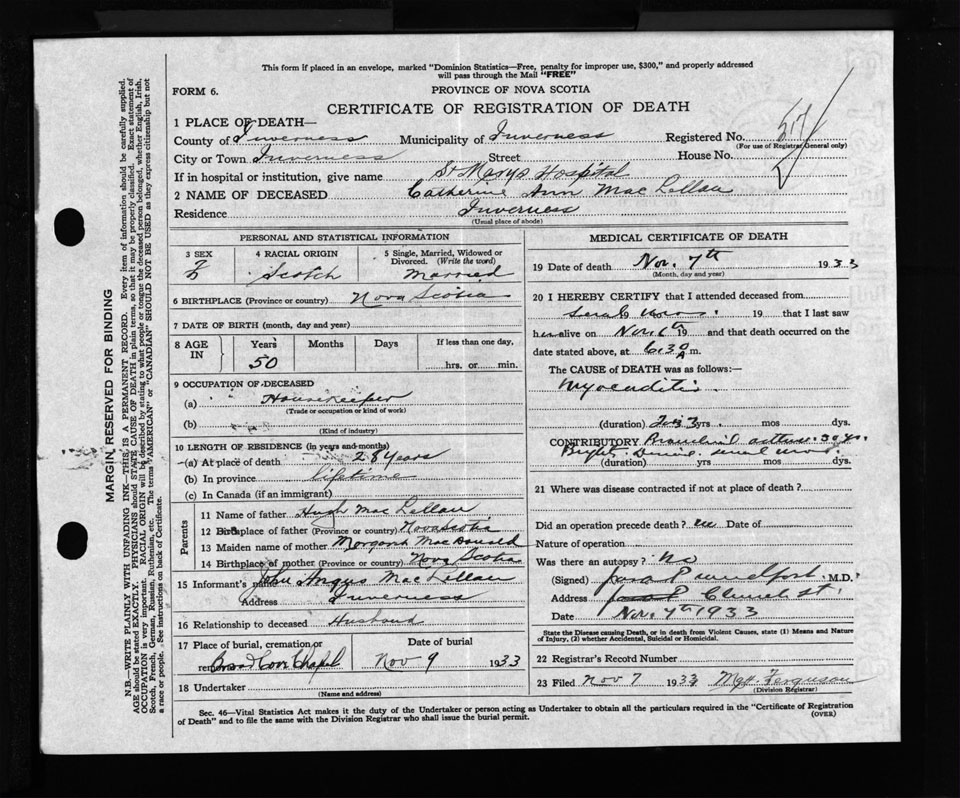 This form if placed in an envelope, marked "Dominion Statistics—Free, penalty for improper use, $300," and properly addressed
will pass through the Mail "FREE"
FORM 6.
PROVINCE OF NOVA SCOTIA
CERTIFICATE OF REGISTRATION OF DEATH
1 PLACE OF DEATH—
County of Inverness Municipality of Inverness Registered No. 517
(For use of Registrar General only)
City or Town Inverness Street House No.
If in hospital or institution, give name St Marys Hospital
2 NAME OF DECEASED Catherine Ann Mac Lellan
Residence Inverness
(Usual place of abode)
PERSONAL AND STATISTICAL INFORMATION
3 SEX 4 RACIAL ORIGIN 5 Single, Married, Widowed or
Divorced. (Write the word)
F Scotch Married
6 BIRTHPLACE (Province or country) Nova Scotia
7 DATE OF BIRTH (month, day and year)
8 AGE IN Years Months Days If less than one day,
50 hrs. or min.
9 OCCUPATION OF DECEASED
(a) Housekeeper
(Trade or occupation or kind of work)
(b)
(Kind of industry)
10 LENGTH OF RESIDENCE (in years and months)
(a) At place of death 28 years
(b) In province lifetime
(c) In Canada (if an immigrant)
Parents
11 Name of father Hugh Mac Lellan
12 Birthplace of father (Province or country) Nova Scotia
13 Maiden name of mother Margaret MacDonald
14 Birthplace of mother (Province or country) Nova Scotia
15 Informant's name John Angus Mac Lellan
Address Inverness
16 Relationship to deceased Husband
17 Place of burial, cremation or Date of burial
removal Broad Cove Chapel Nov 9 1933
18 Undertaker
(Name and address)
MEDICAL CERTIFICATE OF DEATH
19 Date of death Nov. 7th 1933
(Month, day and year)
20 I HEREBY CERTIFY that I attended deceased from
19 that I last saw
her alive on Nov 6th 19 and that death occurred on
date stated above, at 6:30 A m.
The CAUSE of DEATH was as follows:—
Myocarditis
(duration) yrs mos dys.
CONTRIBUTORY Bronchial asthma 30 yrs.
Brights
(duration) yrs mos dys.
21 Where was disease contracted if not at place of death?
Did an operation precede death? no Date of
Nature of operation
Was there an autopsy? No
(Signed) M.D.
Address Church St.
Date Nov. 7th 1933
State the Disease causing Death, or in death from Violent Causes, state (1) Means and Nature
of Injury, (2) whether Accidental, Suicidal or Homicidal.
22 Registrar's Record Number
23 Filed Nov 7 1933 Ferguson
(Division Registrar)
Sec. 46—Vital Statistics Act makes it the duty of the Undertaker or person acting as Undertaker to obtain all the particulars required in the "Certificate of Registration
of Death" and to file the same with the Division Registrar who shall issue the burial permit.
(OVER)
MARGIN RESERVED FOR BINDING
N.B.—WRITE PLAINLY WITH UNFADING INK—THIS IS A PERMANENT RECORD. Every item of information should be carefully supplied.
AGE should be stated EXACTLY. PHYSICIANS should STATE CAUSE OF DEATH in plain terms, so that it may be properly classified. Exact statement of
OCCUPATION is very important. RACIAL ORIGIN will be described by stating to what people or tongue the deceased person belonged, whether English, Irish,
Scotch, French, German, Russian, Ruthenian, etc. The terms "AMERICAN" or "CANADIAN" SHOULD NOT BE USED as they express citizenship but not
a race or people. See instructions on back of Certificate.